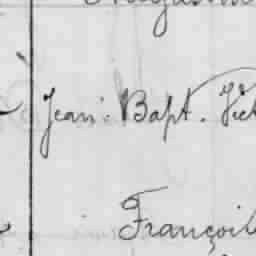 Jean. Bapt. Vict
François